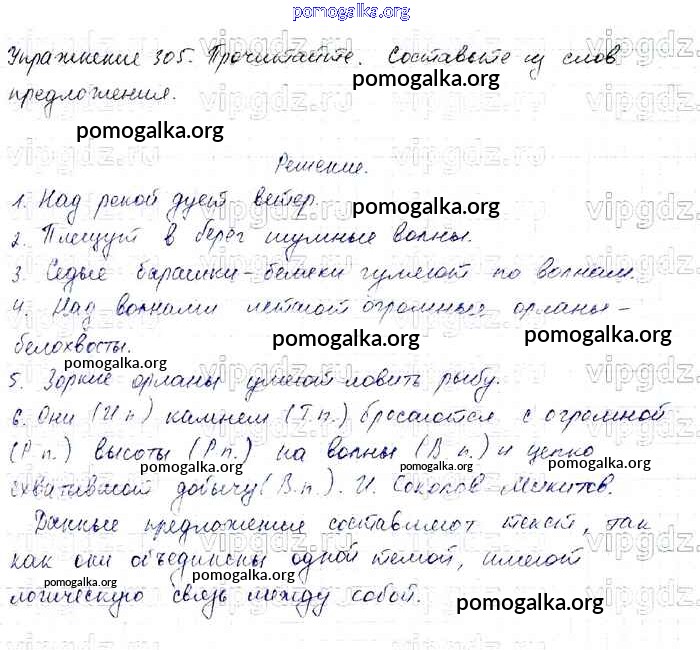 pomogalka.org
Упражнение 305. Прочитайте. Составьте из слов
pomogalka.org
предложения.
pomogalka.org
Решение.
1. Над рекой дует ветер.
pomogalka.org
2. Плещут в берег шумные волны.
3. Седые барашки-беляки гуляют по волнам.
4. Над волнами летают огромные орланы-
белохвосты.
pomogalka.org
pomogalka.org
pomogalka.org
5. Зоркие орланы умеют ловить рыбу.
6. Они (И п) камнем (Т.п.) бросаются с огромной
(Р п.) высоты (Р п.) на волны (В п.) и цепко
pomogalka.org
pomogalka.org
pomogalka.org
схватывают добычу (В.п.). И. Соколов-Микитов.
Данные предложения составляют текст, так
как они объединены одной темой, имеют
pomogalka.org
pomogalka.org
логическую связь между собой.
pomogalka.org
vipgdz.ru